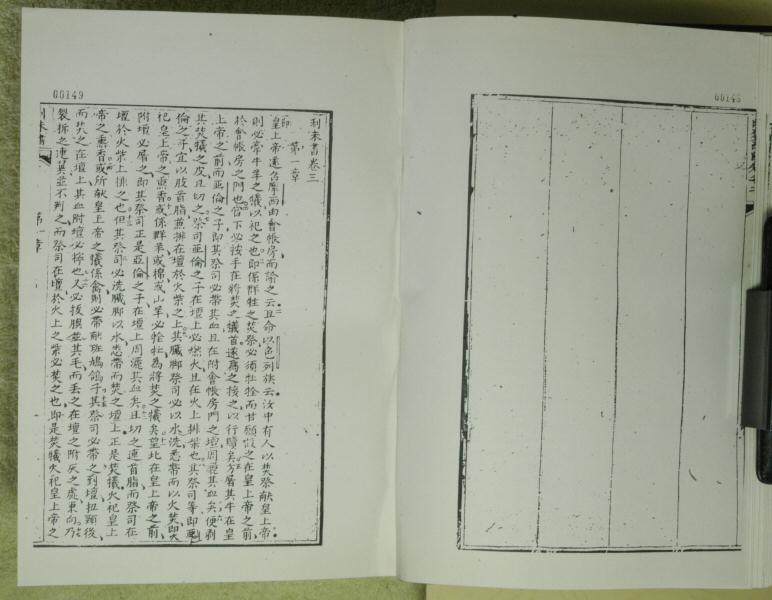 00149
利未書卷三
第一章
節皇上帝遂召摩西由會帳房而諭之云且命以色列族云汝中有人以焚祭獻皇上帝
則必帶牛羊之犧以祀之也即係群牲之焚祭必須牡牷而甘願獻之在皇上帝之前
於會帳房之門也下必按手在將焚之犧首遂為之接之以行贖矣方屠其牛在皇
上帝之前而亞倫之子即其祭司必帶其血且在附會帳房門之壇周灑其血矣便剥
其焚犧之皮且切之祭司亞倫之子在壇上必燃火且在火上排柴也其祭司等即亞
倫之子宜以肢首脂並排在壇於火柴之上其臟脚祭司必以水洗悉帶而以火焚即火
祀皇上帝之熏香或係群羊或棉或山羊必牷牡為將焚之犧矣望北在皇上帝之前
附壇必屠之即其祭司正是亞倫之子在壇上周灑其血矣且切之連首脂而祭司在
壇於火柴上排之也但其祭司必洗臟脚以水悉帶而焚之壇上正是焚犧火祀皇上
帝之熏香或所献皇上帝之犧係禽則必帶献斑鳩鴿子其祭司必帶之到壇扭頸後
而焚之在壇上其血附壇必搾也又必拔膆並其毛而丟之在壇之附灰之處東向乃
裂拆之連翼並不列之而祭司在壇於火上之柴必焚之也即是焚犧火祀皇上帝之
利未書
第一章